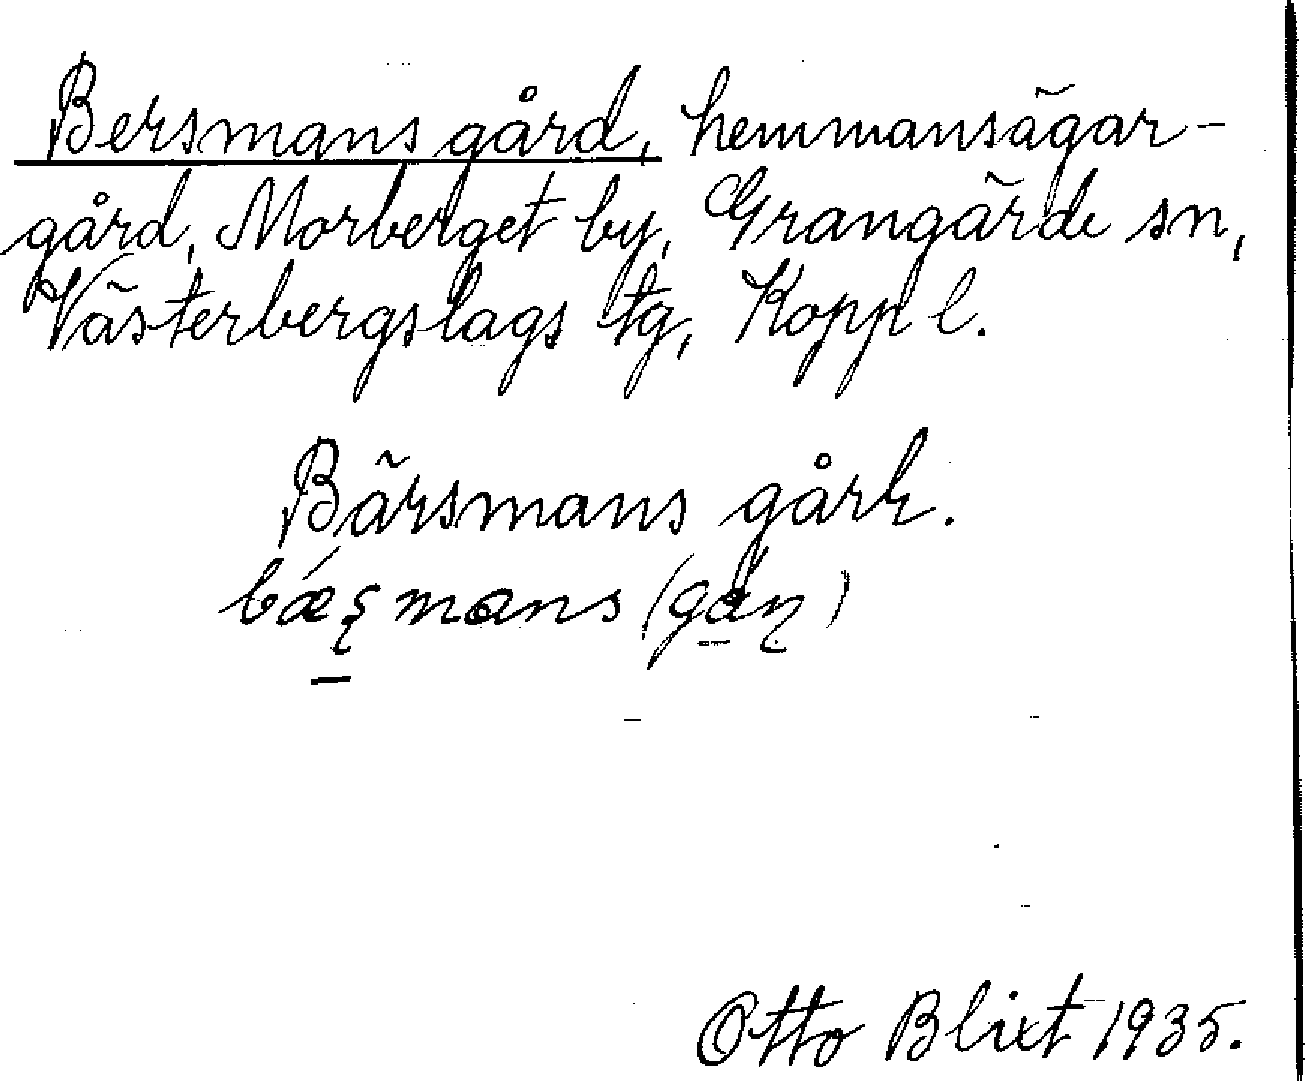 Bersmans gård, hemmansägar-
gård, Morberget by, Grangärde sn,
Västerbergslags tg, Kopp l.
Bärsmans gårn.
bǽ̨ʂmans (gɑ̀ɳ)
Otto Blixt 1935.